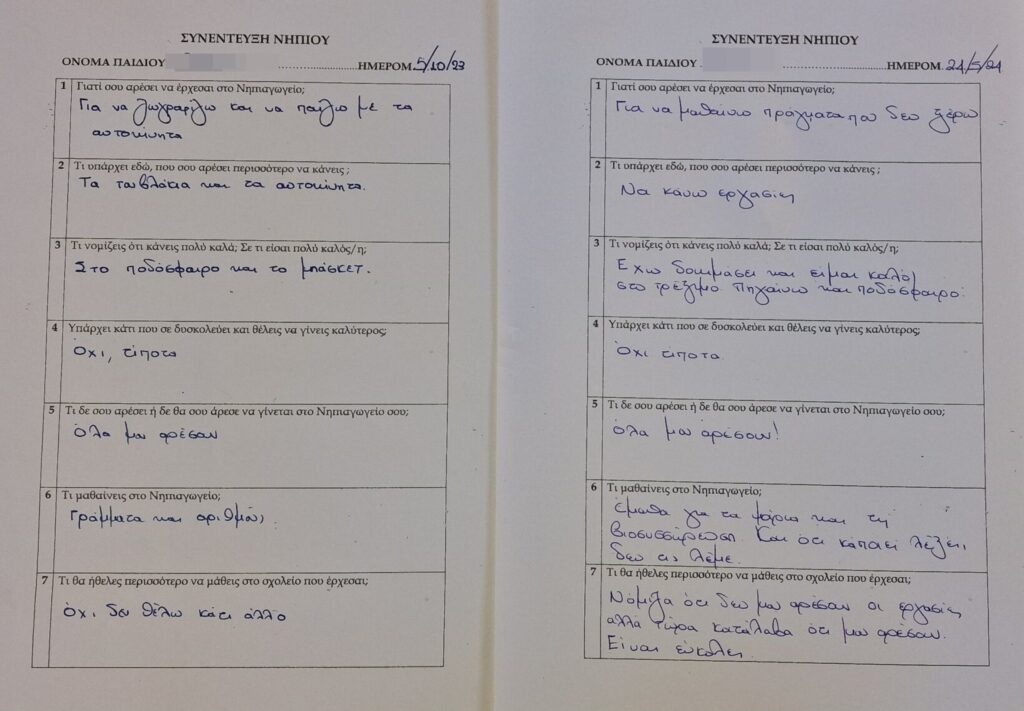 ΣΥΝΕΝΤΕΥΞΗ ΝΗΠΙΟΥ
ΟΝΟΜΑ ΠΑΙΔΙΟΥ ..........................ΗΜΕΡΟΜ. 5/10/23
1 Γιατί σου αρέσει να έρχεσαι στο Νηπιαγωγείο;
Για να ζωγραφίζω και να παίζω με τα
αυτοκίνητα
2 Τι υπάρχει εδώ, που σου αρέσει περισσότερο να κάνεις ;
Τα τουβλάκια και τα αυτοκίνητα.
3 Τι νομίζεις ότι κάνεις πολύ καλά; Σε τι είσαι πολύ καλός/η;
Στο ποδόσφαιρο και το μπάσκετ.
4 Υπάρχει κάτι που σε δυσκολεύει και θέλεις να γίνεις καλύτερος;
Όχι, τίποτα
5 Τι δε σου αρέσει ή δε θα σου άρεσε να γίνεται στο Νηπιαγωγείο σου;
Όλα μου αρέσουν
6 Τι μαθαίνεις στο Νηπιαγωγείο;
Γράμματα και αριθμούς
7 Τι θα ήθελες περισσότερο να μάθεις στο σχολείο που έρχεσαι;
Όχι. δεν θέλω κάτι άλλο
ΣΥΝΕΝΤΕΥΞΗ ΝΗΠΙΟΥ
ΟΝΟΜΑ ΠΑΙΔΙΟΥ ..........................ΗΜΕΡΟΜ. 24/5/24
1 Γιατί σου αρέσει να έρχεσαι στο Νηπιαγωγείο;
Για να μαθαίνω πράγματα που δεν ξέρω
2 Τι υπάρχει εδώ, που σου αρέσει περισσότερο να κάνεις ;
Να κάνω εργασίες
3 Τι νομίζεις ότι κάνεις πολύ καλά; Σε τι είσαι πολύ καλός/η;
Έχω δοκιμάσει και είμαι καλός
στο τρέξιμο πηγαίνω και ποδόσφαιρο.
4 Υπάρχει κάτι που σε δυσκολεύει και θέλεις να γίνεις καλύτερος;
Όχι τίποτα
5 Τι δε σου αρέσει ή δε θα σου άρεσε να γίνεται στο Νηπιαγωγείο σου;
Όλα μου αρέσουν!
6 Τι μαθαίνεις στο Νηπιαγωγείο;
Έμαθα για τα μόρια και τη
βιοσυσσώρευση. Και ότι κάποιες λέξεις
δεν τις λέμε.
7 Τι θα ήθελες περισσότερο να μάθεις στο σχολείο που έρχεσαι;
Νόμιζα ότι δεν μου αρέσουν οι εργασίες
αλλά τώρα κατάλαβα ότι μου αρέσουν.
Είναι εύκολες.